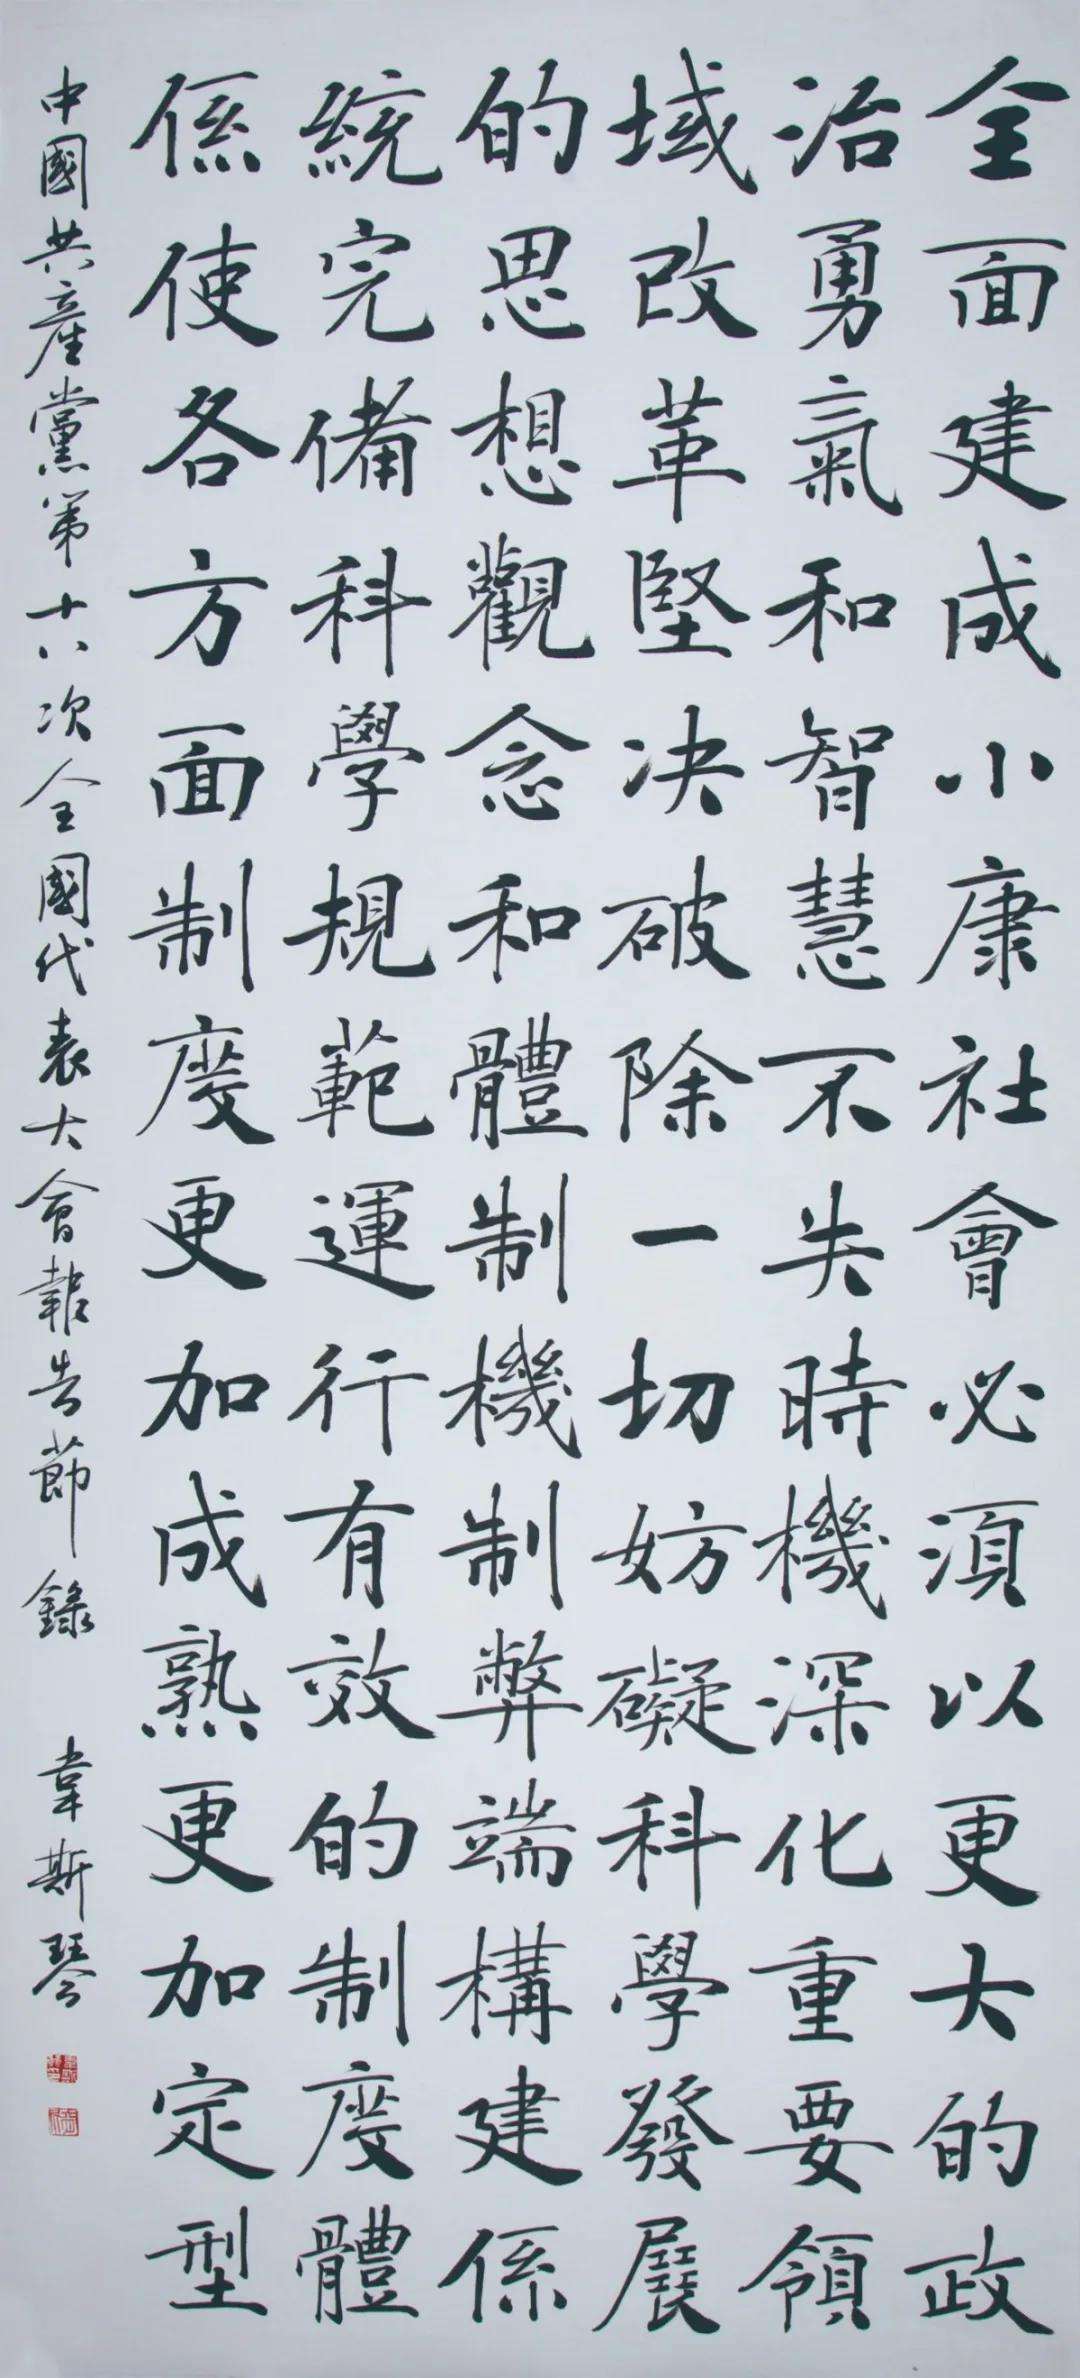 全面建成小康社會必須以更大的政
治勇氣和智慧不失時機深化重要領
域改革堅決破除一切妨礙科學發展
的思想觀念和體制機制弊端構建係
統完備科學規範運行有效的制度體
係使各方面制度更加成熟更加定型
中國共產黨第十八次全國代表大會報告節錄 韋斯琴